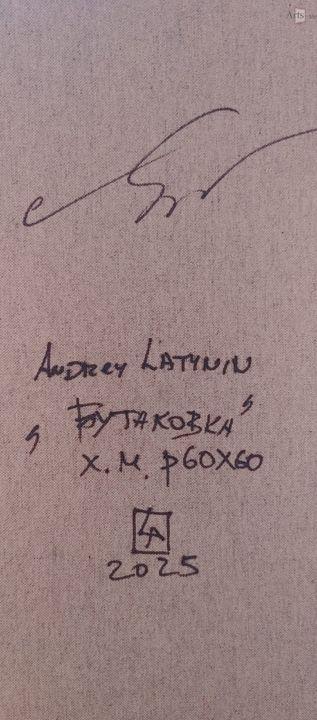 Arts
Andrey Latynin
„Бутаковка"
х.м. р60х60
LA
2025